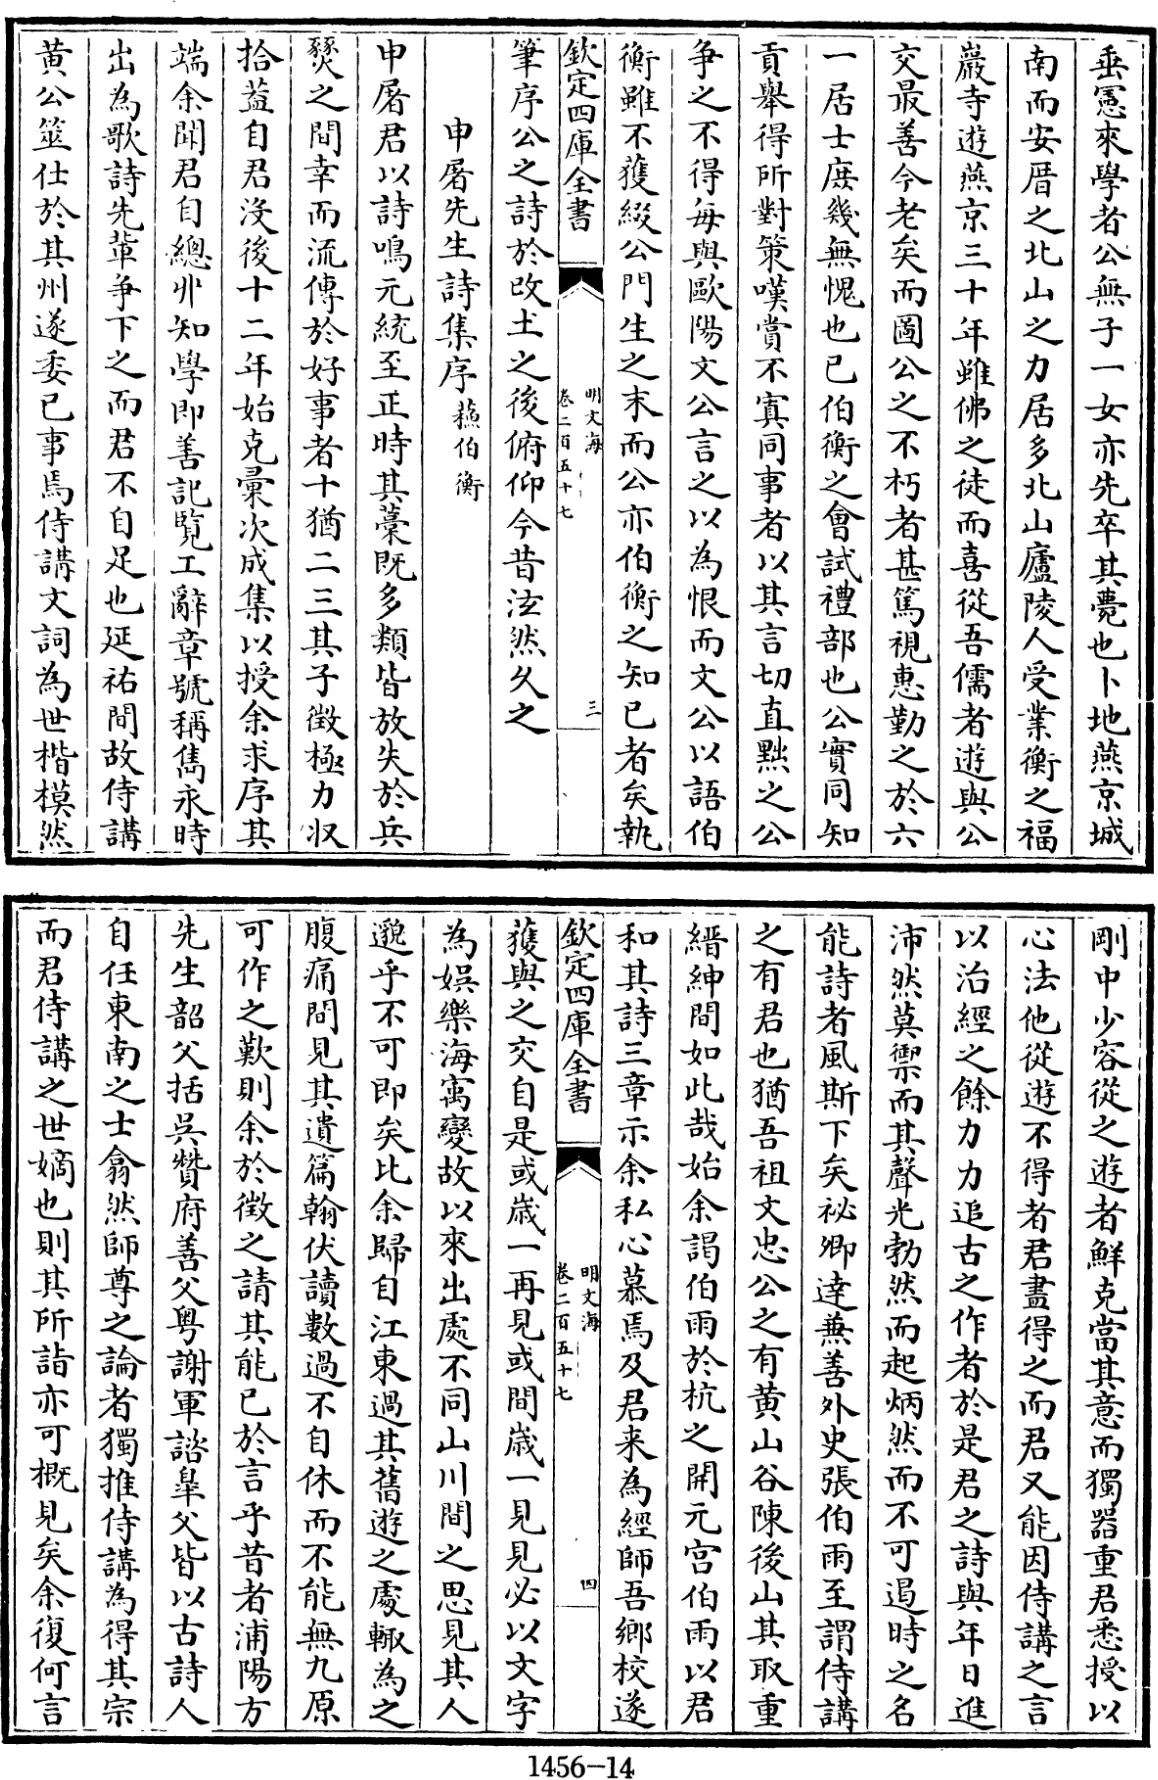 垂憲來學者公無子一女亦先卒其薨也卜地燕京城
南而安厝之北山之力居多北山廬陵人受業衡之福
巖寺遊燕京三十年雖佛之徒而喜從吾儒者遊與公
交最善今老矣而圖公之不朽者甚篤視惠勤之於六
一居士庶幾無愧也已伯衡之會試禮部也公實同知
貢舉得所對策嘆賞不寘同事者以其言切直黜之公
争之不得每與歐陽文公言之以為恨而文公以語伯
衡雖不獲綴公門生之末而公亦伯衡之知已者矣執
欽定四庫全書
明文海
卷二百五十七
三
筆序公之詩於改土之後俯仰今昔泫然久之
申屠先生詩集序 蘇伯衡
申屠君以詩鳴元統至正時其藁既多類皆放失於兵
燹之間幸而流傳於好事者十猶二三其子徵極力収
拾葢自君沒後十二年始克彚次成集以授余求序其
端余聞君自總丱知學即善記覽工辭章號稱雋永時
出為歌詩先輩争下之而君不自足也延祐間故侍講
黄公筮仕於其州遂委已事焉侍講文詞為世楷模然
剛中少容從之遊者鮮克當其意而獨器重君悉授以
心法他從遊不得者君盡得之而君又能因侍講之言
以治經之餘力力追古之作者於是君之詩與年日進
沛然莫禦而其聲光勃然而起炳然而不可遏時之名
能詩者風斯下矣祕卿達兼善外史張伯雨至謂侍講
之有君也猶吾祖文忠公之有黄山谷陳後山其取重
縉紳間如此哉始余謁伯雨於杭之開元宫伯雨以君
和其詩三章示余私心慕焉及君来為經師吾鄉校遂
欽定四庫全書
明文海
卷二百五十七
四
獲與之交自是或歲一再見或間歲一見見必以文字
為娛樂海㝢變故以來出處不同山川間之思見其人
邈乎不可即矣比余歸自江東過其舊遊之處輙為之
腹痛間見其遺篇翰伏讀數過不自休而不能無九原
可作之歎則余於徵之請其能已於言乎昔者浦陽方
先生韶父括吳贊府善父粤謝軍諮臯父皆以古詩人
自任東南之士翕然師尊之論者獨推侍講為得其宗
而君侍講之世嫡也則其所詣亦可槪見矣余復何言
1456-14